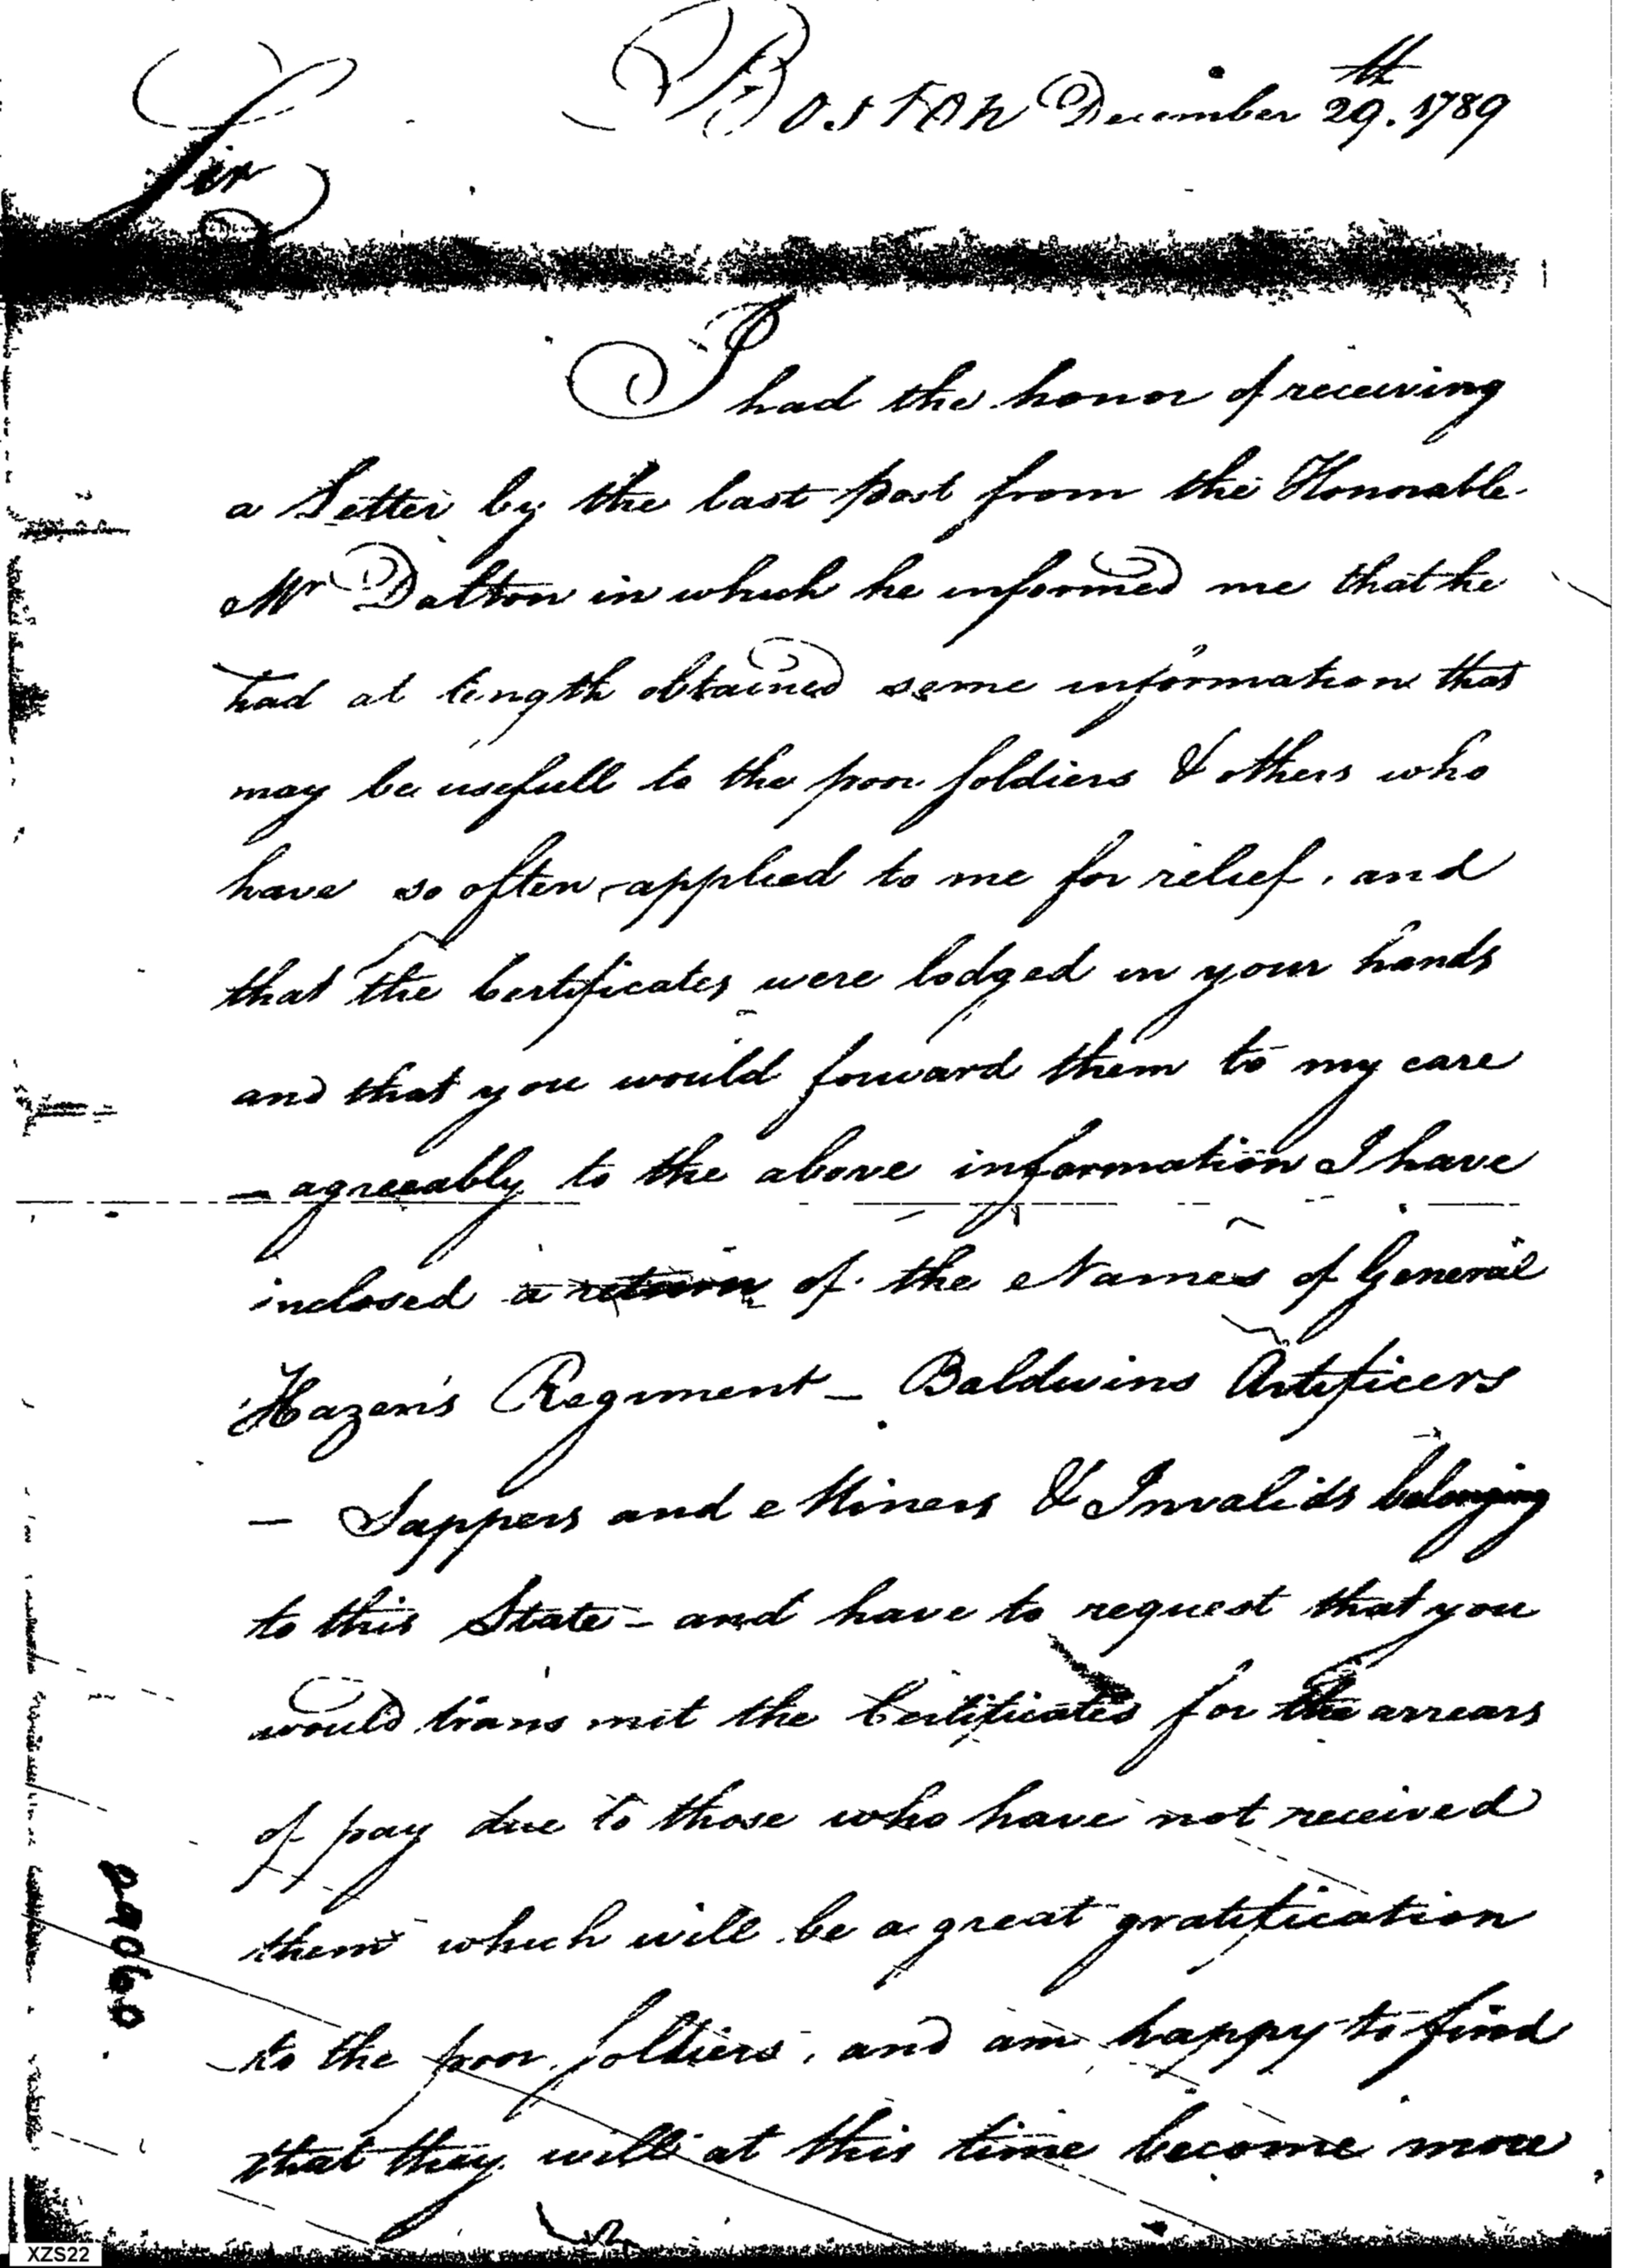 Boston December 29th. 1789
Sir
I had the honor of receiving
a Letter by the last post from the Honorable
Mr Dalton in which he informed me that he
had at length obtained some information that
may be usefull to the poor soldiers & others who
have so often applied to me for relief, and
that the Certificates were lodged in your hands
and that you would forward them to my care
— agreeably to the above information I have
inclosed a return of the Names of General
Hazen's Regiment — Baldwins Artificers
— Sappers and Miners & Invalids belonging
to this State — and have to request that you
would transmit the Certificates for the arrears
of pay due to those who have not received
them which will be a great gratification
to the poor soldiers, and am happy to find
that they will at this time become more
29060
XZS22